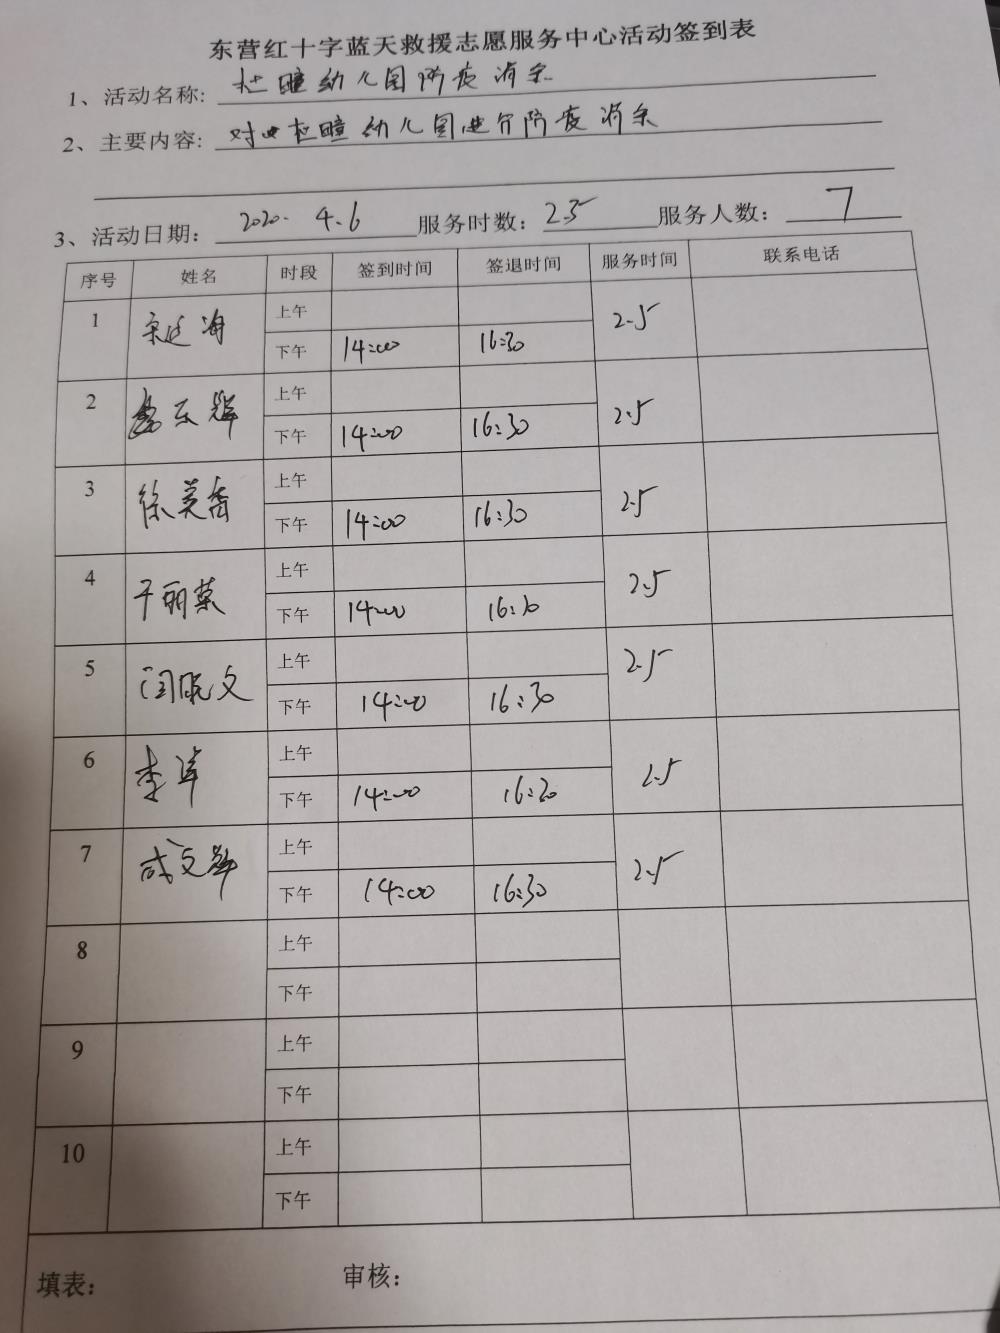 东营红十字蓝天救援志愿服务中心活动签到表
1、活动名称: 幼儿园防疫消杀
2、主要内容: 对 幼儿园进行防疫消杀
3、活动日期: 2020. 4.6 服务时数: 2.5 服务人数: 7
序号 姓名 时段 签到时间 签退时间 服务时间 联系电话
1 上午
下午 14:00 16:30 2.5
2 上午
下午 14:00 16:30 2.5
3 徐美香 上午
下午 14:00 16:30 2.5
4 上午
下午 14:00 16:30 2.5
5 上午
下午 14:00 16:30 2.5
6 李 上午
下午 14:00 16:30 2.5
7 成文 上午
下午 14:00 16:30 2.5
8 上午
下午
9 上午
下午
10 上午
下午
填表: 审核: